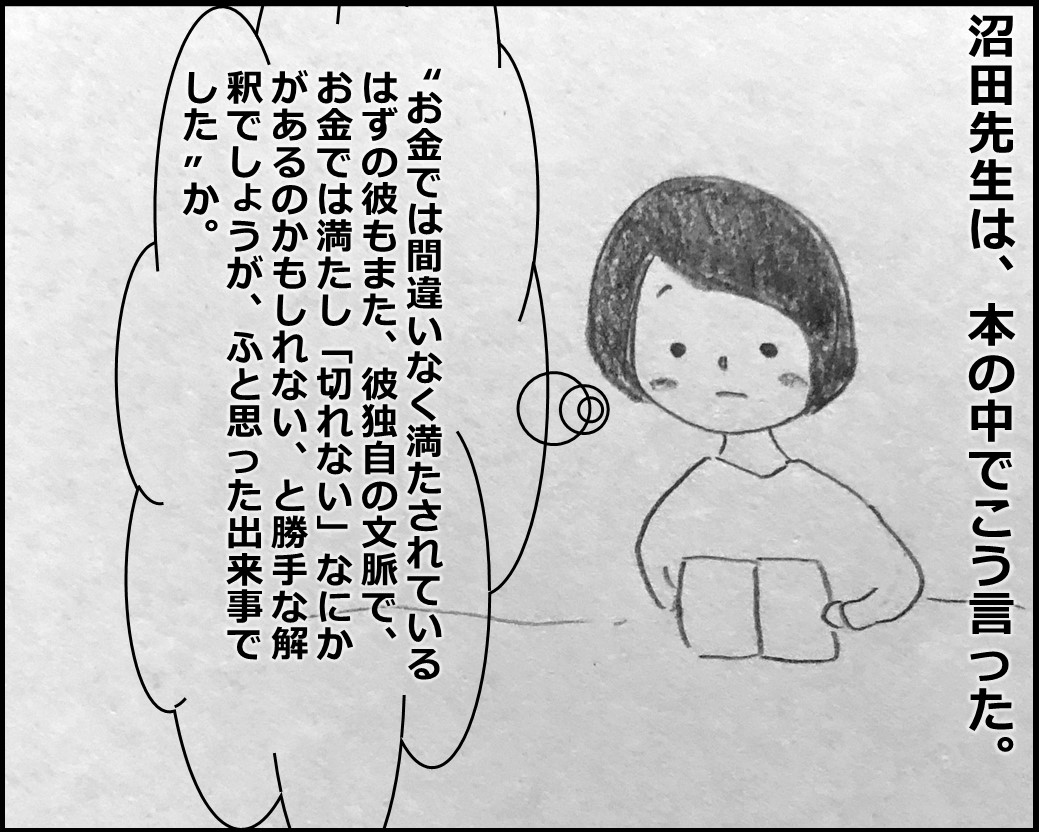 沼田先生は、本の中でこう言った。
“お金では間違いなく満たされている
はずの彼もまた、彼独自の文脈で、
お金では満たし「切れない」なにか
があるのかもしれない、と勝手な解
釈でしょうが、ふと思った出来事で
した”か。